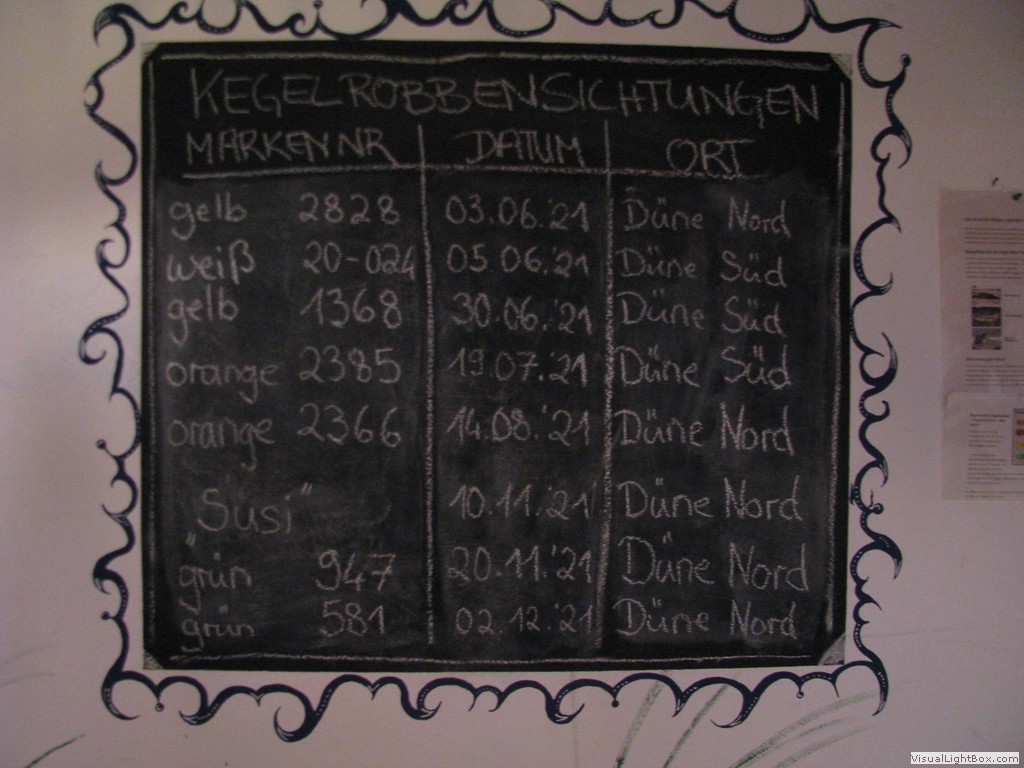 KEGELROBBENSICHTUNGEN
MARKENNR DATUM ORT
gelb 2828 03.06.'21 Düne Nord
weiß 20-024 05.06.'21 Düne Süd
gelb 1368 30.06.'21 Düne Süd
orange 2385 19.07.'21 Düne Süd
orange 2366 14.08.'21 Düne Nord
„Susi" 10.11.'21 Düne Nord
grün 947 20.11.'21 Düne Nord
grün 581 02.12.'21 Düne Nord
VisualLightBox.com